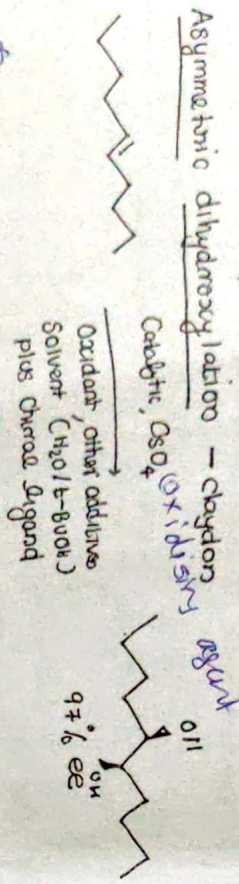 Asymmetric dihydroxylation – claydon
Catalytic, OsO4 (oxidising agent
Oxidant, other additives
Solvent (H2O/t-BuOH)
plus chiral ligand
OH
OH
97% ee